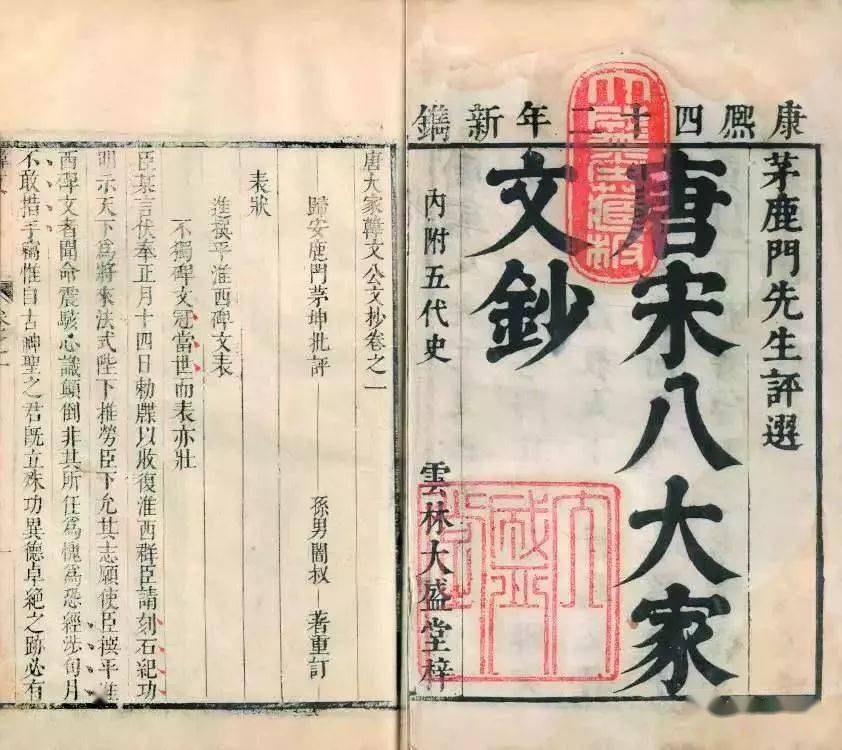 康熙四十二年新鐫
茅鹿門先生評選
唐宋八大家
文鈔
內附五代史
雲林大盛堂梓
大盛堂
大盛堂藏板
唐大家韓文公文抄卷之一
歸安鹿門茅坤批評
孫男闇叔茅著重訂
表狀
進撰平淮西碑文表
不獨碑文冠當世而表亦壯
臣某言伏奉正月十四日勅牒以收復淮西群臣請刻石紀功
明示天下為將來法式陛下推勞臣下允其志願使臣撰平淮
西碑文者聞命震駭心識顛倒非其所任為愧為恐經涉旬月
不敢措手竊惟自古神聖之君既立殊功異德卓絕之跡必有